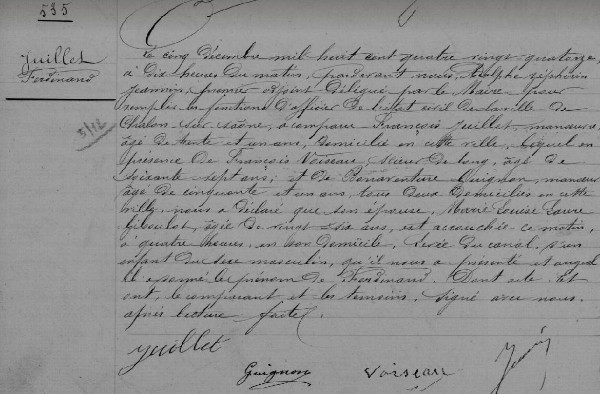 535
Juillet
Ferdinand
5/12
Le cinq décembre mil huit cent quatre vingt-quatorze,
à dix heures du matin, par devant nous, Adolphe Zéphirin
Jeannin, premier adjoint délégué par le Maire pour
remplir les fonctions d'officier de l'état civil de la ville de
Chalon-sur-Saône, a comparu François Juillet, manœuvre,
âgé de trente et un ans, domicilié en cette ville, lequel en
présence de François Voiseau, scieur de long, âgé de
soixante-sept ans, et de Bonaventure Guignon, manœuvre
âgé de cinquante et un ans, tous deux domiciliés en cette
ville, nous a déclaré que son épouse, Marie Louise Laure
Giboulot, âgée de vingt-six ans, est accouchée ce matin,
à quatre heures, en son domicile, levée du canal, d'un
enfant du sexe masculin, qu'il nous a présenté et auquel
il a donné le prénom de Ferdinand. Dont acte. Et
ont, le comparant et les témoins, signé avec nous
après lecture faite.
Juillet
Guignon
Voiseau